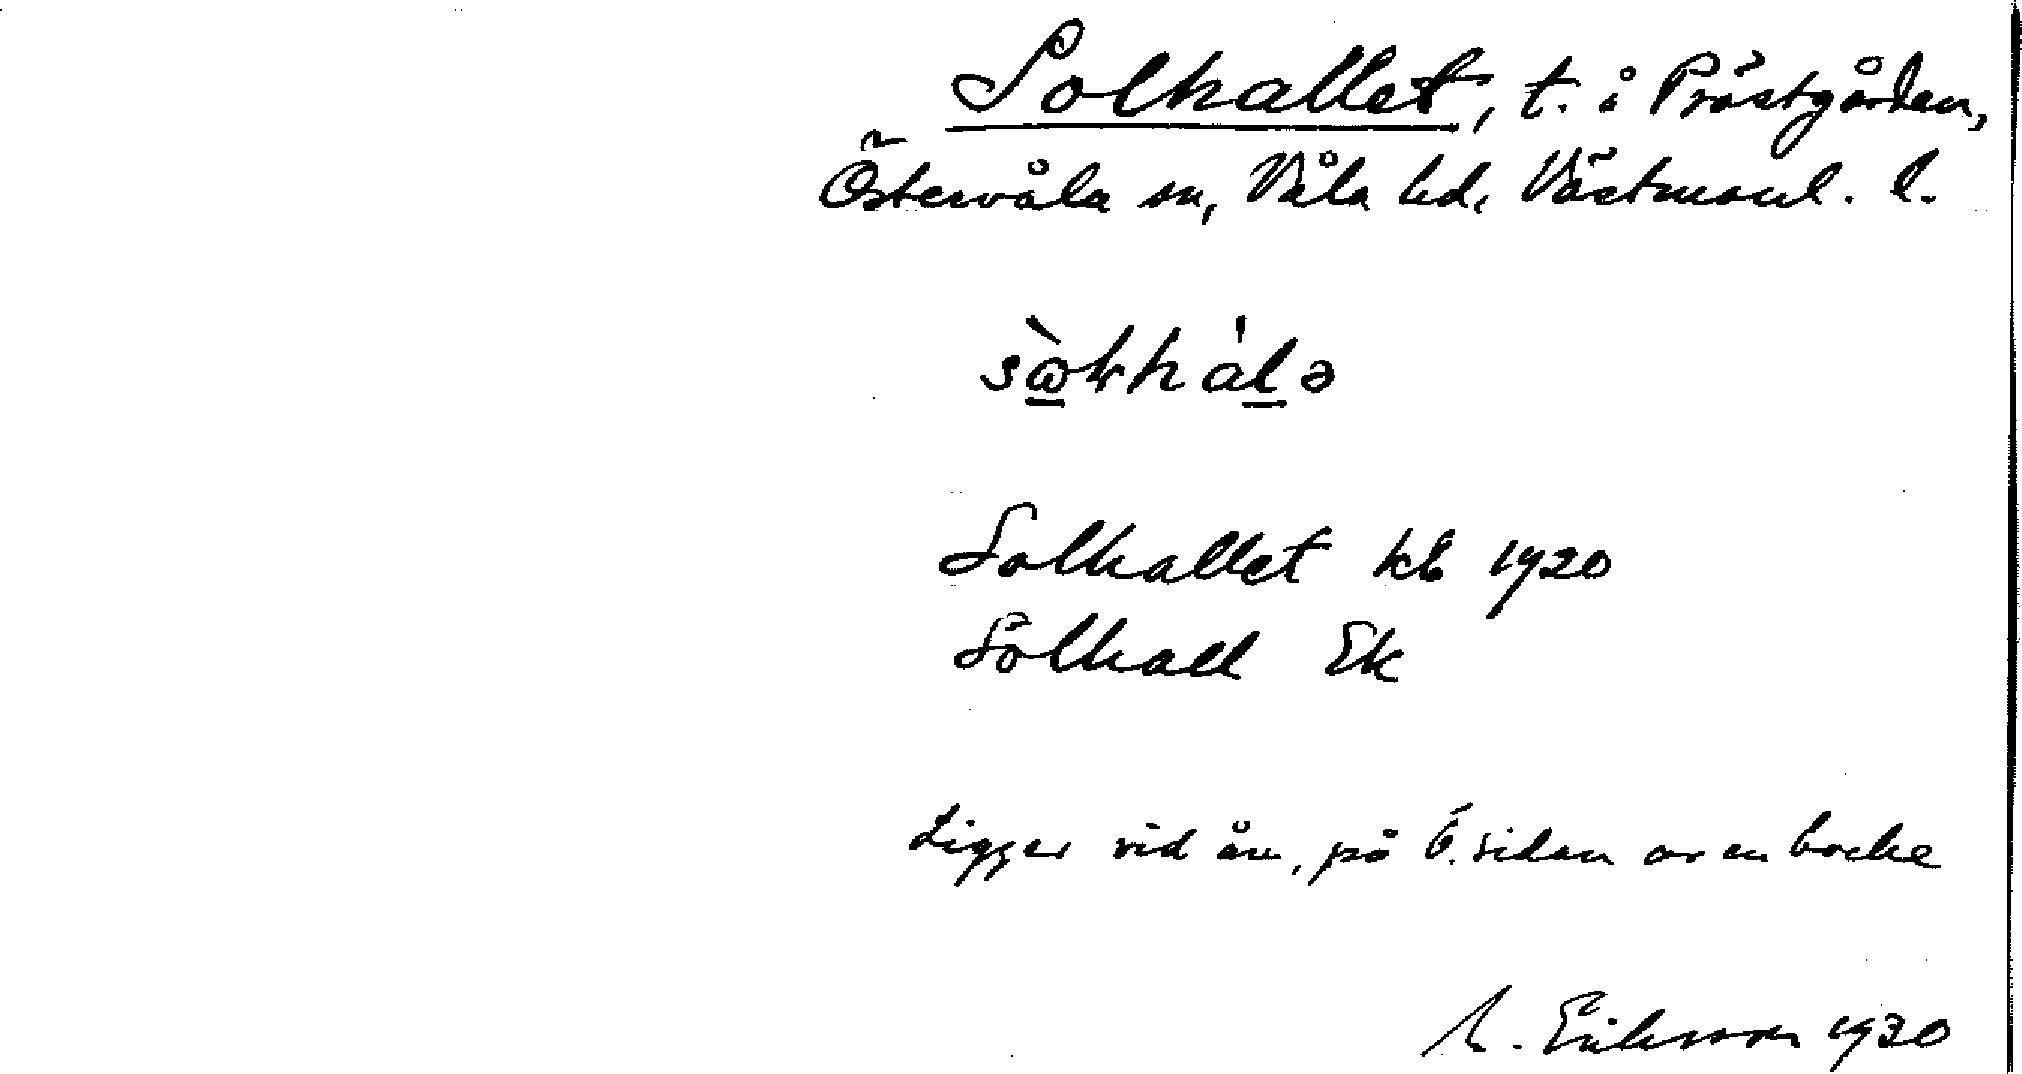 Solhallet, t. i Prästgården,
Östervåla sn, Våla hd, Västmanl. l.
Solhallet kb 1920
Solhall Ek
Ligger vid ån, på ö. sidan av en backe
M. Eriksson 1930